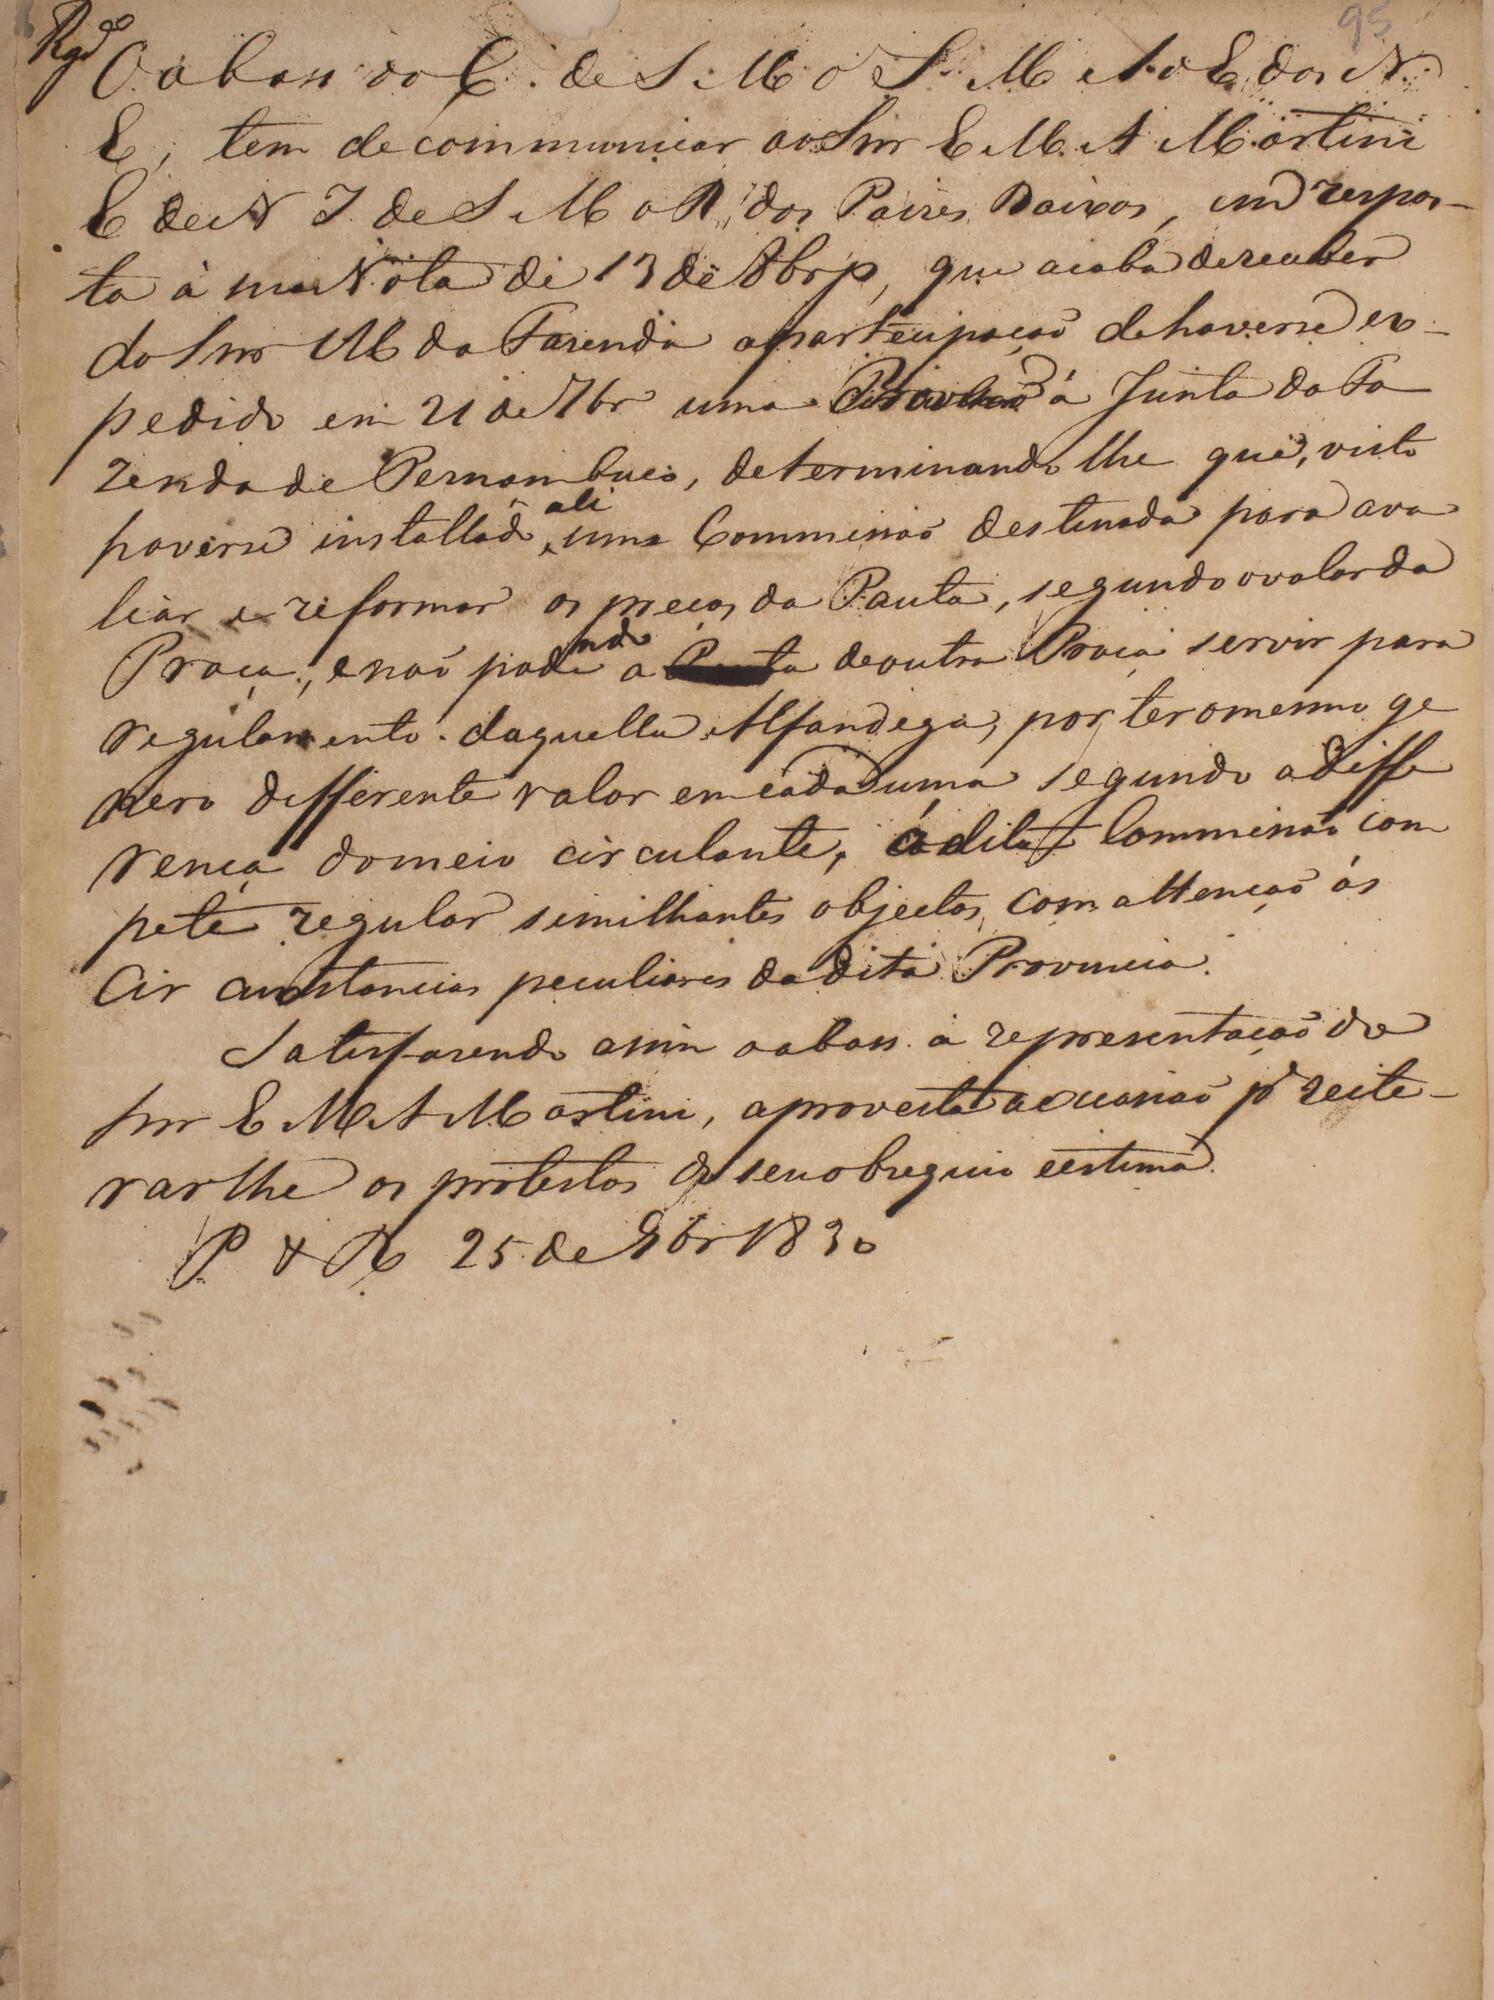 95
Rgdo
O abaxo do C. de S. M. o S. M. e A. d E. dos N.
E, tem de communicar ao Snr E. M. A Martini
E de N I. de S M o R. dos Paizes Baixos, em respos-
ta à sua Nota de 13 de 8br p, que acaba de receber
do Snr M da Fazenda a participação de haverse ex-
pedido em 21 de 7br uma Provisão á Junta da Fa
zenda de Pernambuco, determinandolhe que, visto
haverse installado ali uma Commissão destinada para ava
liar e reformar os preços da Pauta, segundo o valor da
Praça, e não podendo a Pauta de outra Praça servir para
regulamento daquella Alfandega, por ter o mesmo ge
nero differente valor em cada uma segundo a diffe
rença do meio circulante, á dita Commissão com
pete regular similhantes objectos, com attenção ás
Circunstancias peculiares da dita Provincia.
Satisfazendo assim o abaxo á representação do
Snr E M A Martini, aproveita a occasião pa reite-
rarlhe os protestos de seu obzequio e estima.
P & R 25 de 9br 1830